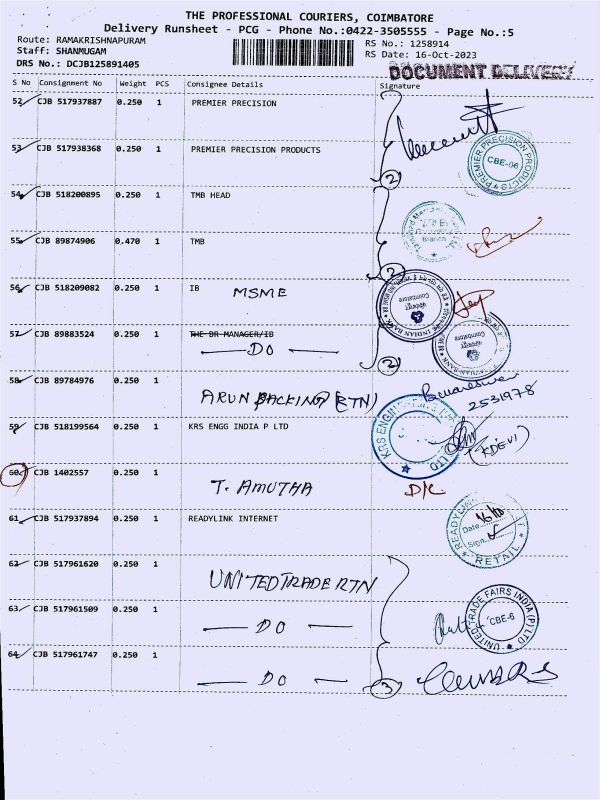 THE PROFESSIONAL COURIERS, COIMBATORE
Delivery Runsheet - PCG - Phone No.:0422-3505555 - Page No.:5
Route: RAMAKRISHNAPURAM
Staff: SHANMUGAM
DRS No.: DCJB125891405
RS No.: 1258914
RS Date: 16-Oct-2023
DOCUMENT DELIVERY
S No Consignment No Weight PCS Consignee Details Signature
52 CJB 517937887 0.250 1 PREMIER PRECISION
53 CJB 517938368 0.250 1 PREMIER PRECISION PRODUCTS
PREMIER PRECISION PRODUCTS
CBE-06
2
54 CJB 518200895 0.250 1 TMB HEAD
Branch
55 CJB 89874906 0.470 1 TMB
2
56 CJB 518209082 0.250 1 IB
MSME
INDIAN BANK
Coimbatore
57 CJB 89883524 0.250 1 THE BR MANAGER/IB
DO
INDIAN BANK
Coimbatore
2
58 CJB 89784976 0.250 1
ARUN PACKING (RTN)
2531978
59 CJB 518199564 0.250 1 KRS ENGG INDIA P LTD
(KDEVI)
60 CJB 1402557 0.250 1
T. AMUTHA
D/C
61 CJB 517937894 0.250 1 READYLINK INTERNET
READYLINK
Date 16/10
Sign
RETAIL
62 CJB 517961620 0.250 1
UNITED TRADE RTN
63 CJB 517961509 0.250 1
DO
UNITED TRADE FAIRS INDIA (P) LTD
CBE-6
64 CJB 517961747 0.250 1
DO
3